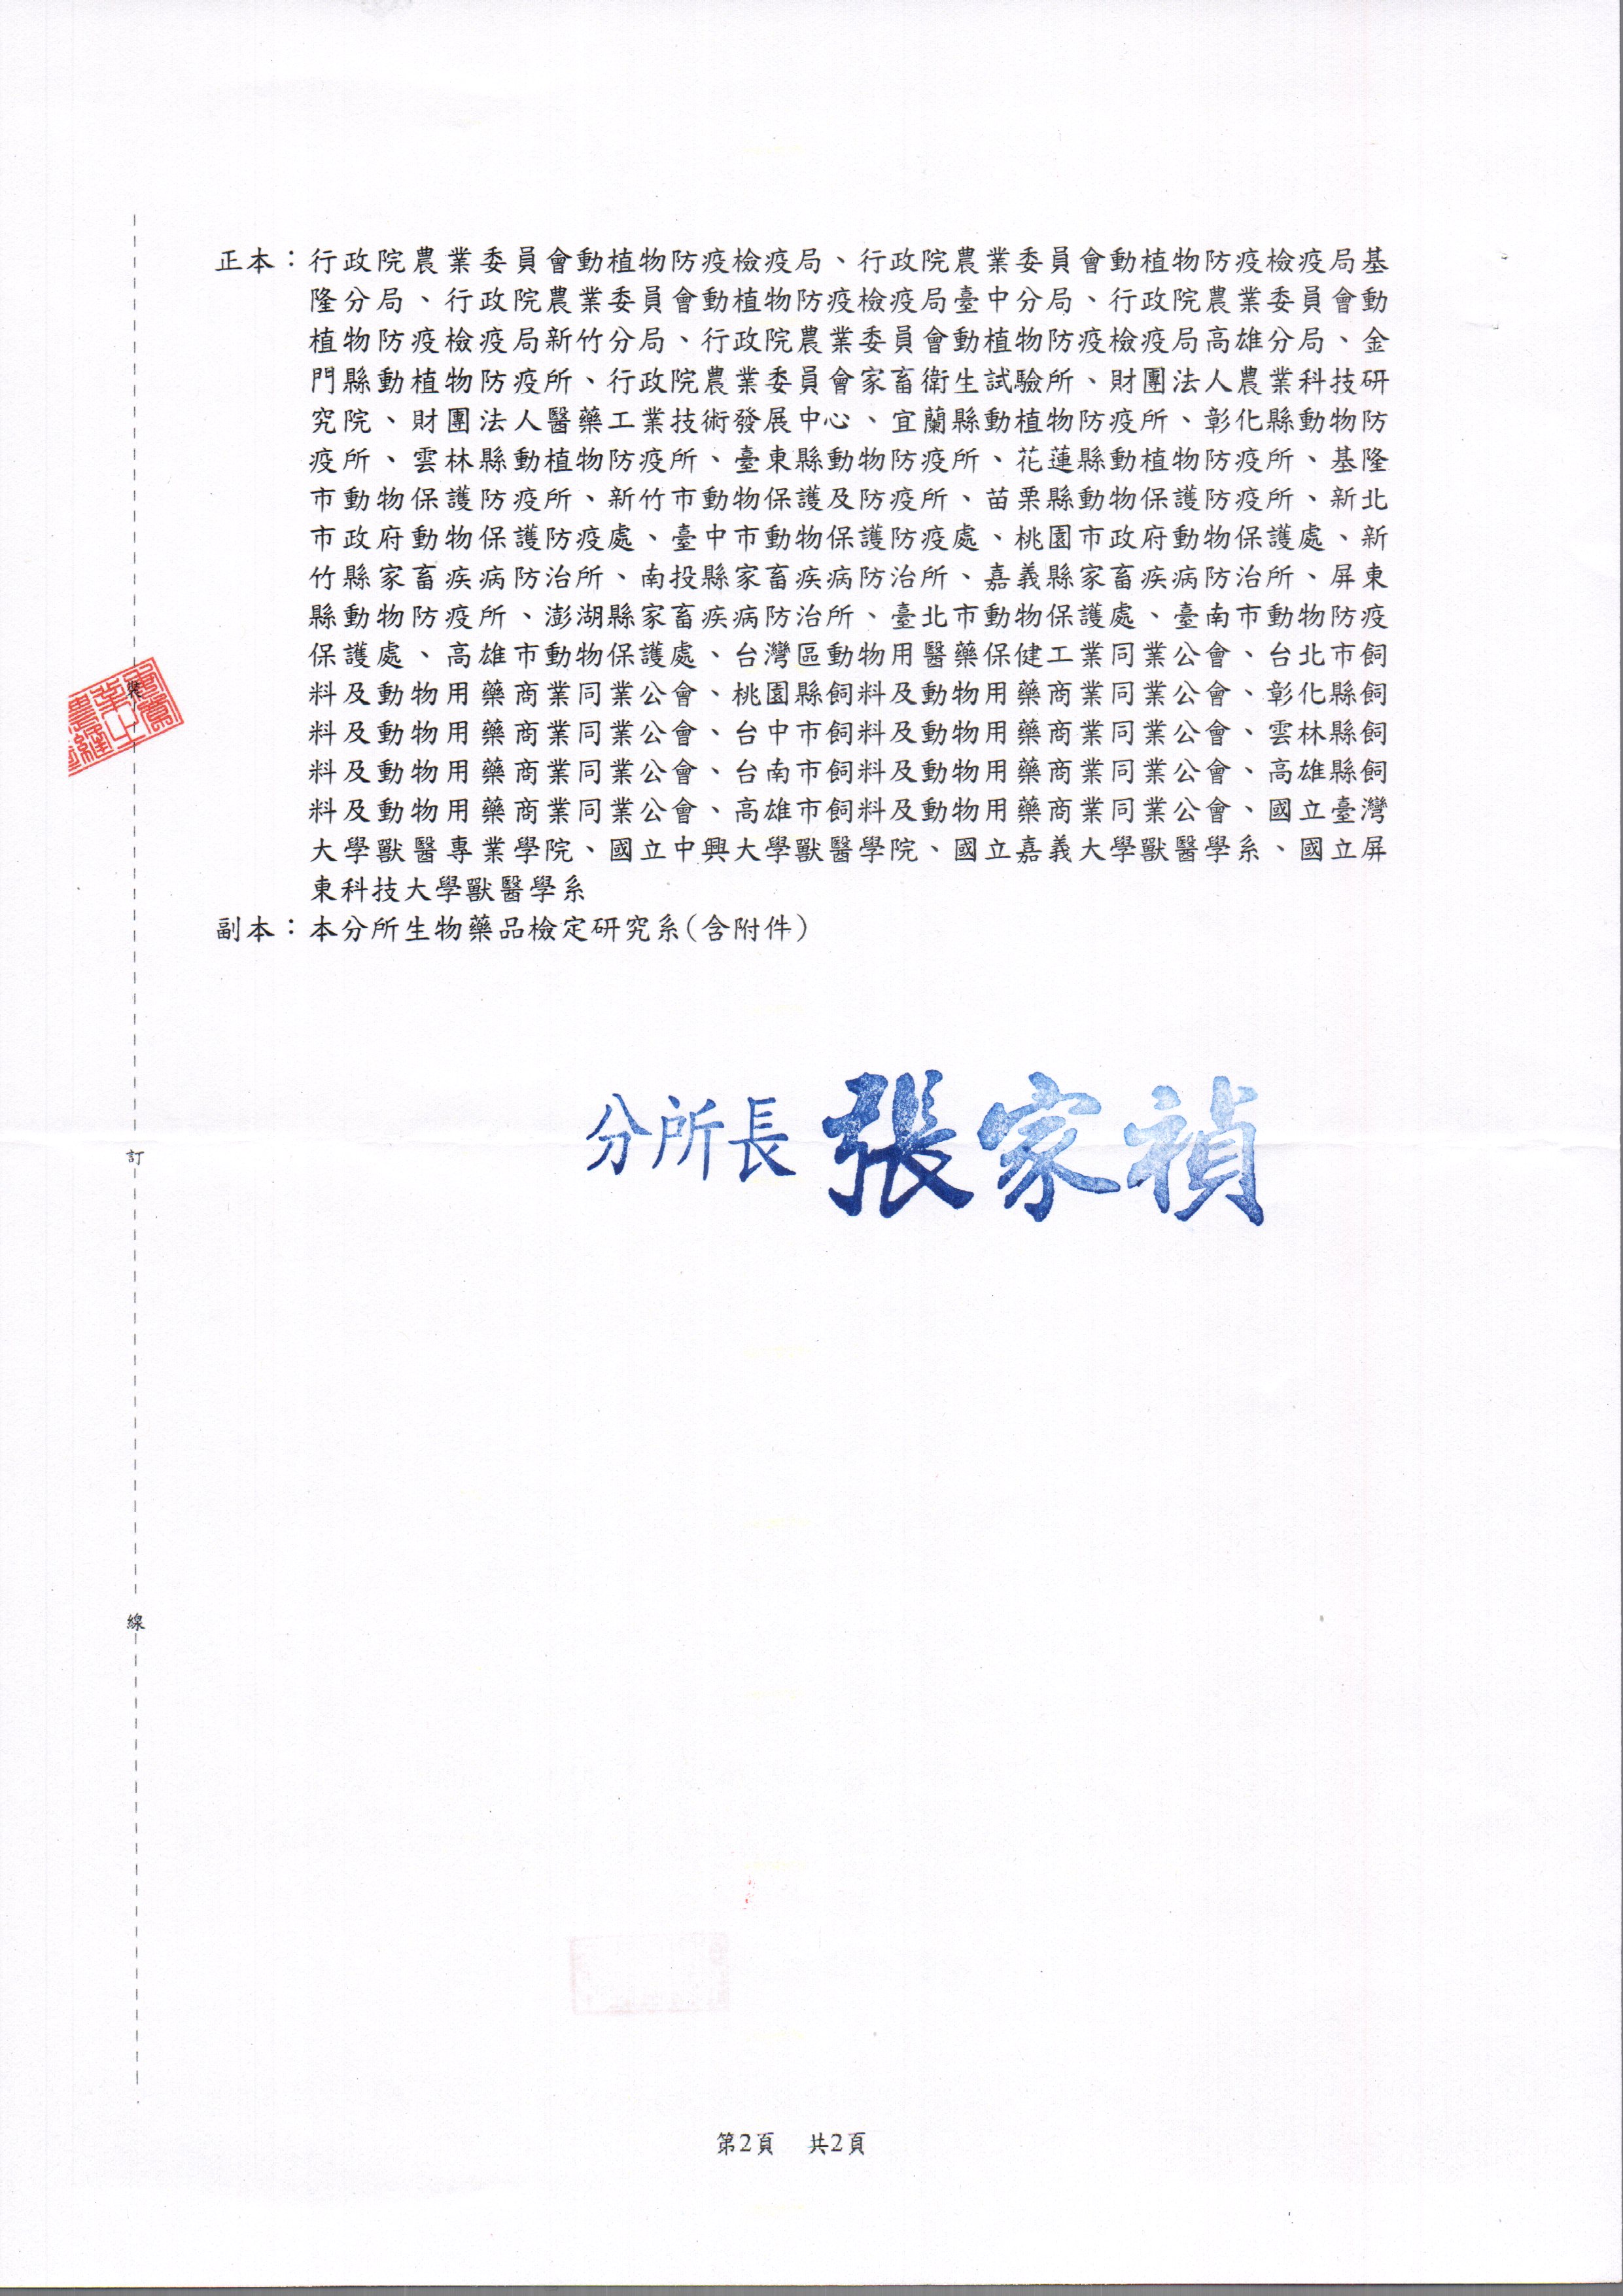 正本：行政院農業委員會動植物防疫檢疫局、行政院農業委員會動植物防疫檢疫局基
隆分局、行政院農業委員會動植物防疫檢疫局臺中分局、行政院農業委員會動
植物防疫檢疫局新竹分局、行政院農業委員會動植物防疫檢疫局高雄分局、金
門縣動植物防疫所、行政院農業委員會家畜衛生試驗所、財團法人農業科技研
究院、財團法人醫藥工業技術發展中心、宜蘭縣動植物防疫所、彰化縣動物防
疫所、雲林縣動植物防疫所、臺東縣動物防疫所、花蓮縣動植物防疫所、基隆
市動物保護防疫所、新竹市動物保護及防疫所、苗栗縣動物保護防疫所、新北
市政府動物保護防疫處、臺中市動物保護防疫處、桃園市政府動物保護處、新
竹縣家畜疾病防治所、南投縣家畜疾病防治所、嘉義縣家畜疾病防治所、屏東
縣動物防疫所、澎湖縣家畜疾病防治所、臺北市動物保護處、臺南市動物防疫
保護處、高雄市動物保護處、台灣區動物用醫藥保健工業同業公會、台北市飼
料及動物用藥商業同業公會、桃園縣飼料及動物用藥商業同業公會、彰化縣飼
料及動物用藥商業同業公會、台中市飼料及動物用藥商業同業公會、雲林縣飼
料及動物用藥商業同業公會、台南市飼料及動物用藥商業同業公會、高雄縣飼
料及動物用藥商業同業公會、高雄市飼料及動物用藥商業同業公會、國立臺灣
大學獸醫專業學院、國立中興大學獸醫學院、國立嘉義大學獸醫學系、國立屏
東科技大學獸醫學系
副本：本分所生物藥品檢定研究系(含附件)
分所長 張家禎
訂
線
第2頁 共2頁